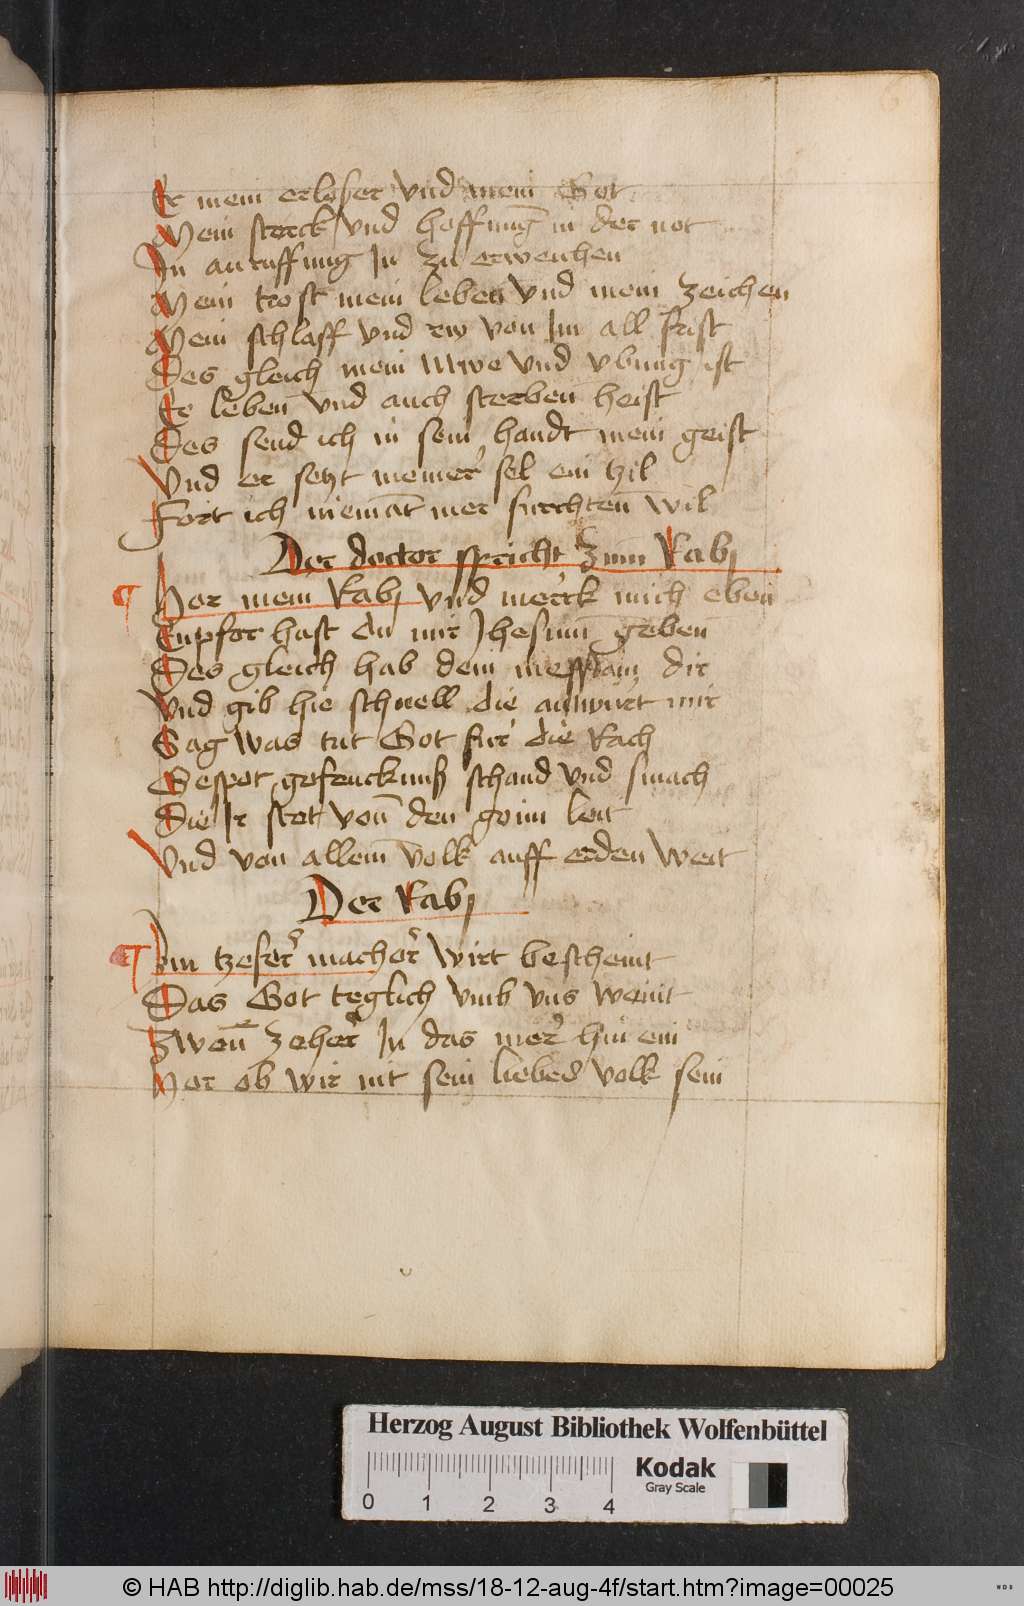 Er mein erloser vnd mein Got
Mein sterck vnd hoffnūg in der not
In anruffung In zu erweichen
Mein trost mein leben vnd mein zeichen
Mein schlaff vnd rw von Im all frist
Des gleich mein Mwe vnd vbung ist
Er leben vnd auch sterben heist
Des send ich in sein handt mein geist
Vnd er setzt meiner sel ein tzil
Fort ich niemāt mer furchten wil
Der doctor spricht zum Rabj
¶ Hor mein Rabj vnd merck mich eben
Cupfer hast du mir Jhesum geben
Des gleich hab dem dir
Vnd gib hie schnell die antwurt mir
Sag was tut Got fur die Rach
Gespot gefencknuß schand vnd smach
Die Ir stet von den goim leit
Vnd von allem volk auff erden weit
Der Rabj
¶ Im tzefer macher wirt bescheint
Das Got teglich vmb vns weint
Zwen zeher In das mer hin ein
Hor ob wir nit sein liebes volk sein
Herzog August Bibliothek Wolfenbüttel
Kodak
Gray Scale
0 1 2 3 4
© HAB http://diglib.hab.de/mss/18-12-aug-4f/start.htm?image=00025